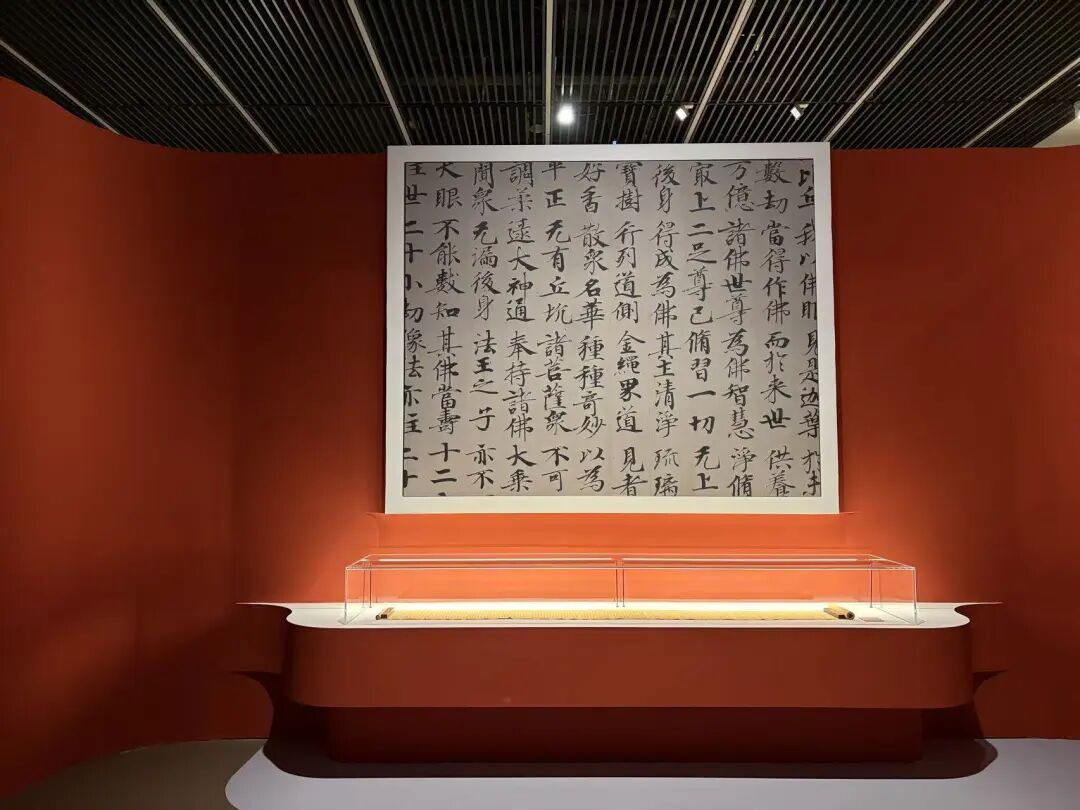 比丘我以佛眼見是迦葉於未
數劫當得作佛而於来世供養
万億諸佛世尊為佛智慧淨脩
冣上二足尊已脩習一切无上
後身得成為佛其土清淨琉璃
寶樹行列道側金繩界道見者
好香散衆名華種種奇妙以為
平正无有丘坑諸菩薩衆不可
調柔逮大神通奉持諸佛大乘
聞衆无漏後身法王之子亦不
天眼不能數知其佛當壽十二
住世二十小劫像法亦住二十